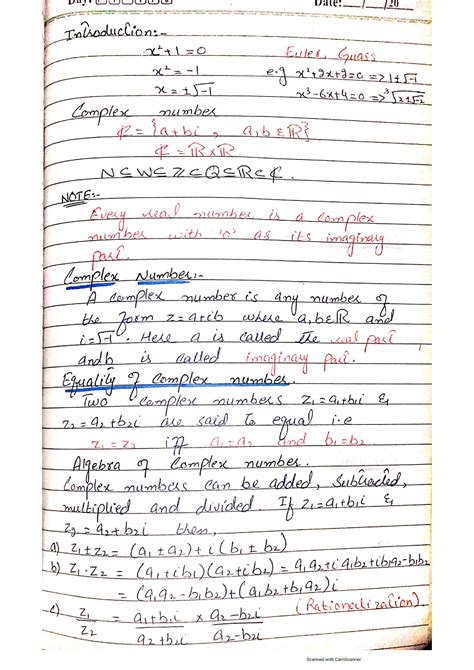 Date: __/__/20__
Introduction:-
x²+1=0 Euler, Guass
x² = -1 e.g x²+2x+2=0 => 1±√-1
x = ±√-1 x³-6x+4=0 => ³√2±√-2
Complex number
₵ = {a+bi , a,b ∈ ℝ}
₵ = ℝ×ℝ
N ⊆ W ⊆ Z ⊆ Q ⊆ ℝ ⊆ ₵.
NOTE:-
Every real number is a complex
number with '0' as its imaginary
part.
Complex Number:-
A complex number is any number of
the form z=a+ib where a,b∈ℝ and
i=√-1. Here a is called the real part
and b is called imaginary part.
Equality of complex number.
Two complex numbers z₁=a₁+b₁i &
z₂=a₂+b₂i are said to equal i.e
z₁=z₂ iff a₁=a₂ and b₁=b₂
Algebra of Complex number.
Complex numbers can be added, subtracted,
multiplied and divided. If z₁=a₁+b₁i &
z₂=a₂+b₂i then,
a) z₁±z₂ = (a₁±a₂)+i(b₁±b₂)
b) z₁.z₂ = (a₁+ib₁)(a₂+ib₂) = a₁a₂+ia₁b₂+ib₁a₂-b₁b₂
= (a₁a₂-b₁b₂)+(a₁b₂+b₁a₂)i
c) z₁/z₂ = a₁+b₁i/a₂+b₂i × a₂-b₂i/a₂-b₂i (Rationalization).
Scanned with CamScanner